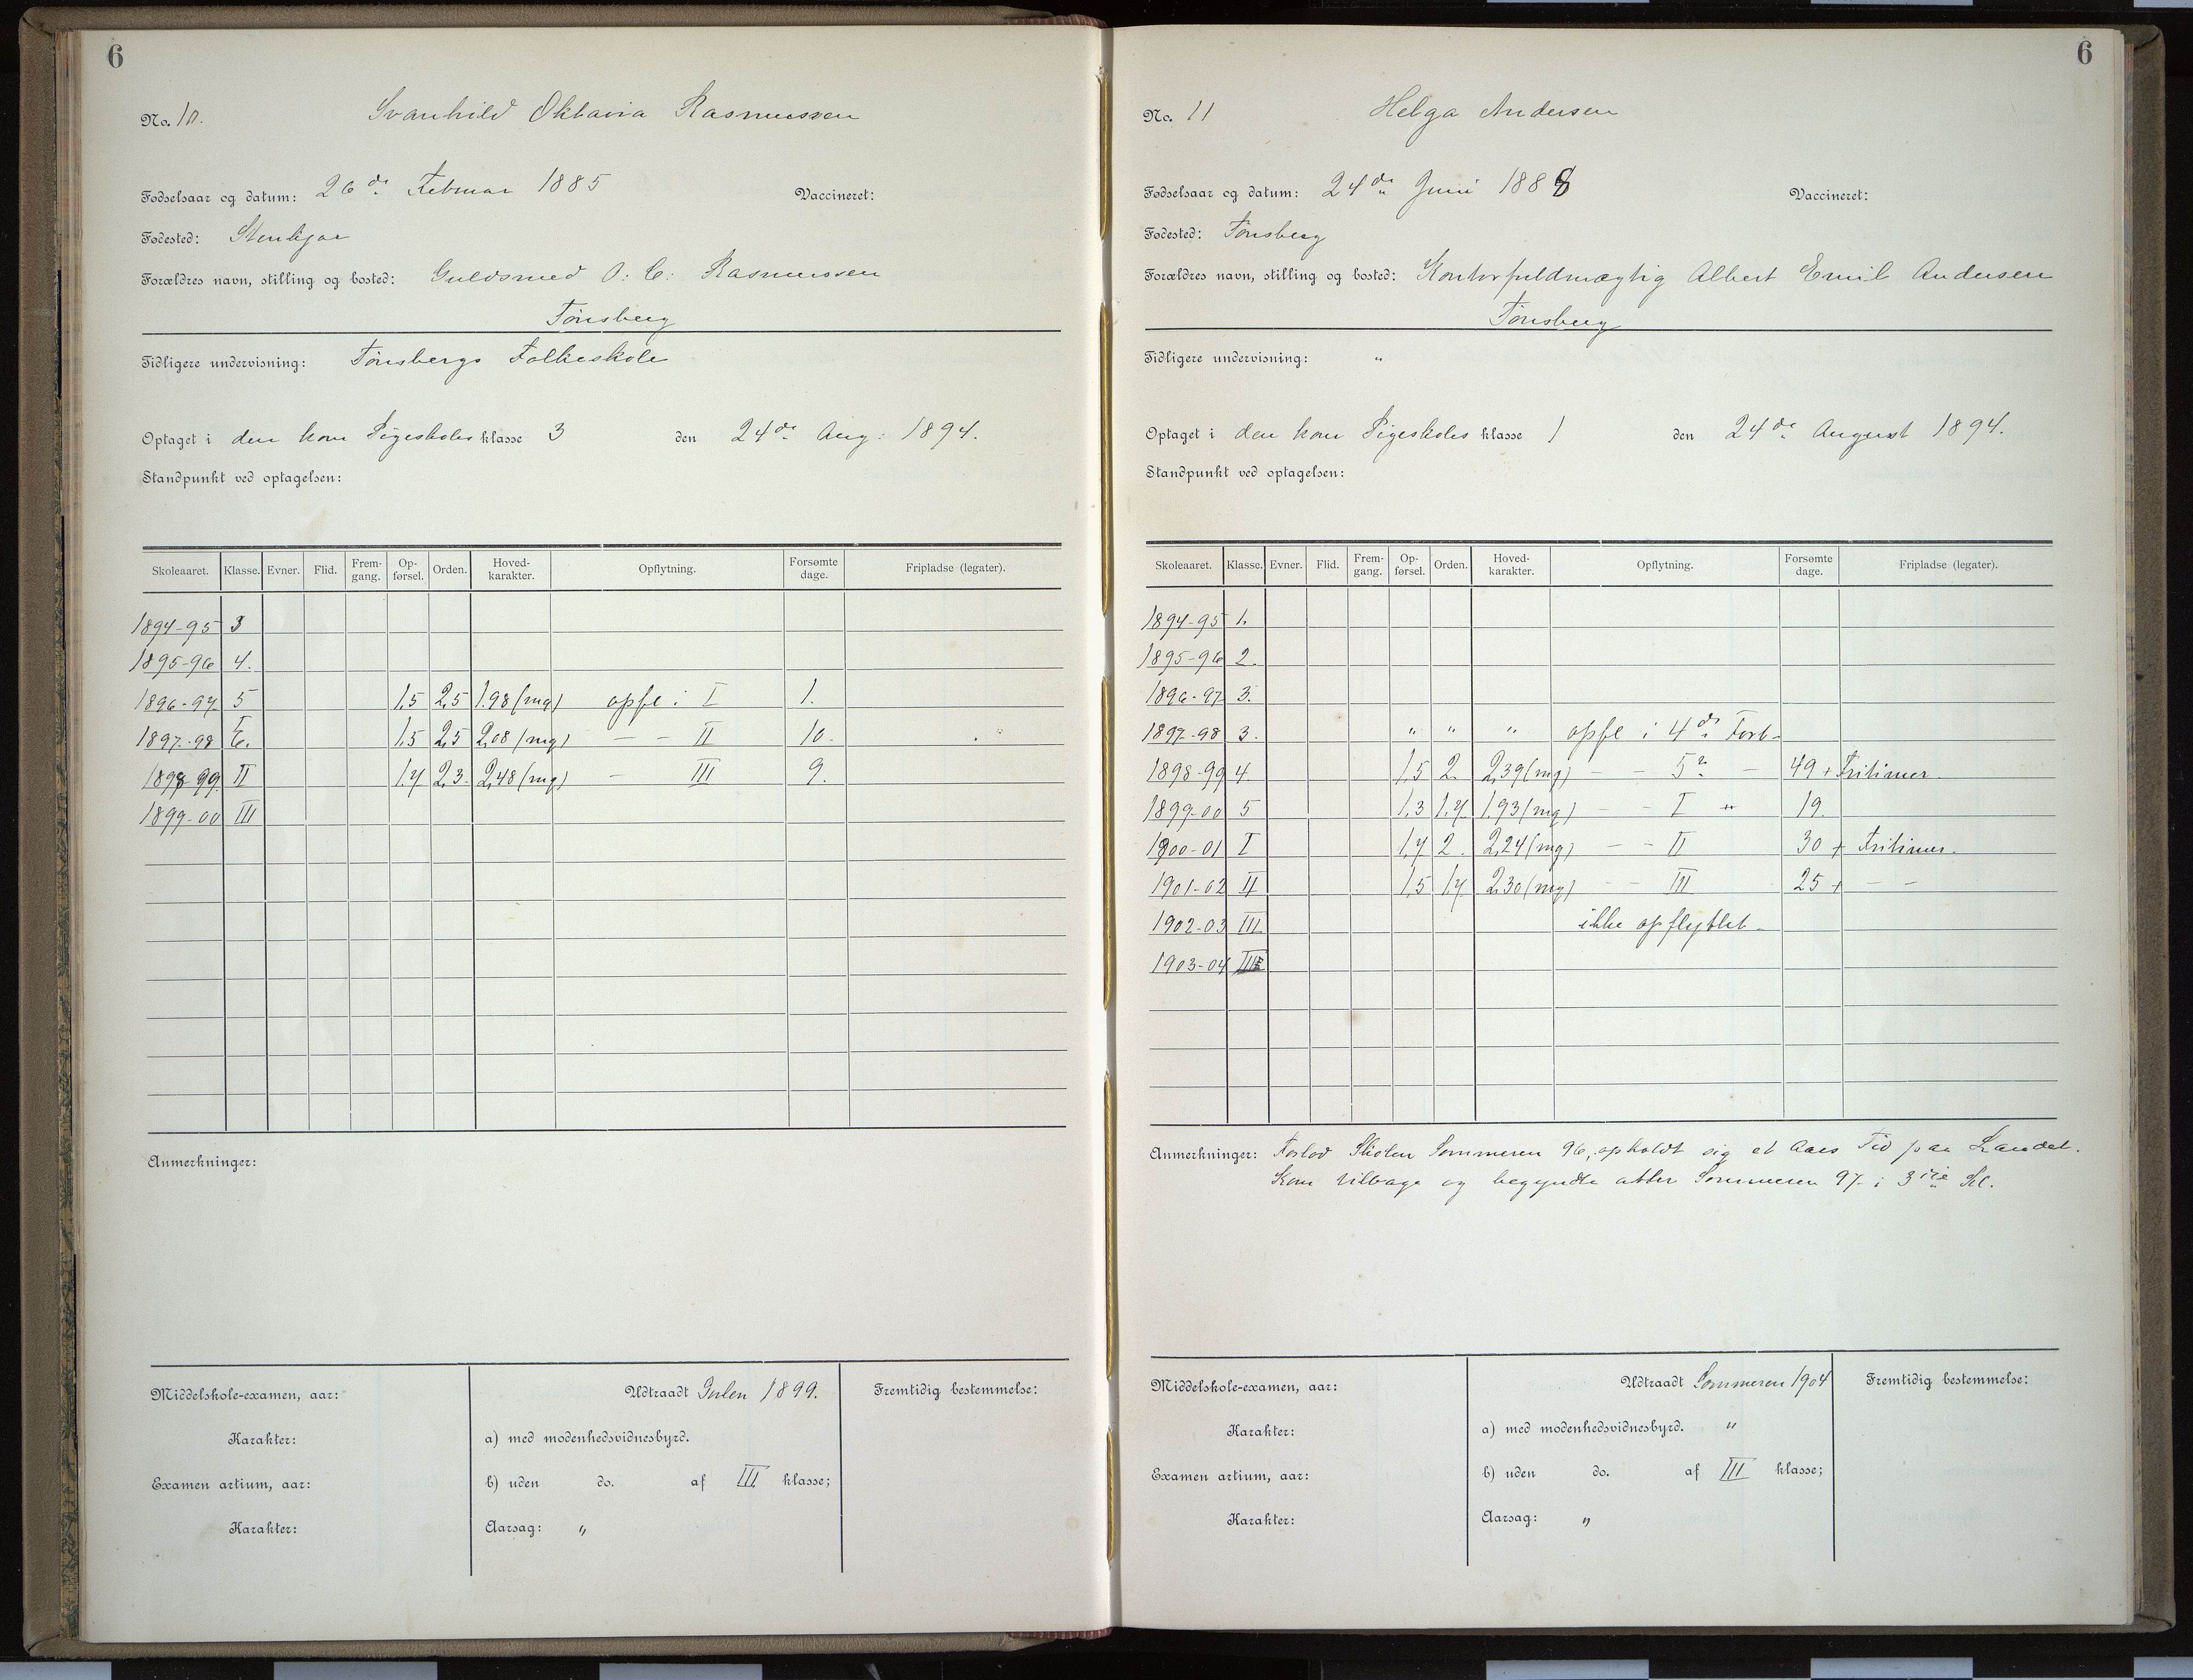 6
No. 10. Svanhild Oktavia Rasmussen
Fødselsaar og datum: 26de Februar 1885 Vaccineret:
Fødested: Stenkjær
Forældres navn, stilling og bosted: Guldsmed O. C. Rasmussen
Tønsberg
Tidligere undervisning: Tønsbergs Folkeskole
Optaget i den kom Pigeskoles klasse 3 den 24de Aug: 1894.
Standpunkt ved optagelsen:
Skoleaaret. Klasse. Evner. Flid. Frem-gang. Op-førsel. Orden. Hoved-karakter. Opflytning. Forsømte dage. Fripladse (legater).
1894-95 3
1895-96 4.
1896-97 5 1,5 2,5 1.98 (mg) opfl i I 1.
1897-98 I 1,5 2,5 2,08 (mg) — — II 10.
1898-99 II 1,7 2,3 2,48 (mg) — III 9.
1899-00 III
Anmerkninger:
Middelskole-examen, aar: Udtraadt Julen 1899. Fremtidig bestemmelse:
Karakter: a) med modenhedsvidnesbyrd.
Examen artium, aar: b) uden do. af III klasse;
Karakter: Aarsag: "
6
No. 11 Helga Andersen
Fødselsaar og datum: 24de Juni 1888 Vaccineret:
Fødested: Tønsberg
Forældres navn, stilling og bosted: Kontorfuldmægtig Albert Emil Andersen
Tønsberg
Tidligere undervisning: "
Optaget i den kom Pigeskoles klasse 1 den 24de August 1894.
Standpunkt ved optagelsen:
Skoleaaret. Klasse. Evner. Flid. Frem-gang. Op-førsel. Orden. Hoved-karakter. Opflytning. Forsømte dage. Fripladse (legater).
1894-95 1.
1895-96 2.
1896-97 3.
1897-98 3. " " " opfl i 4de Forb.
1898-99 4. 1,5 2. 2,39 (mg) — — 5te — 49 + Fritimer.
1899-00 5 1,3 1,7 1,93 (mg) — — I " 19.
1900-01 I 1,7 2. 2,24 (mg) — — II 30 + Fritimer.
1901-02 II 1,5 1,7 2,30 (mg) — — III 25 + — —
1902-03 III ikke opflyttet.
1903-04 III
Anmerkninger: Forlod Skolen Sommeren 96, opholdt sig et Aars Tid paa Landet.
Kom tilbage og begyndte atter Sommeren 97 i 3die Kl.
Middelskole-examen, aar: Udtraadt Sommeren 1904 Fremtidig bestemmelse:
Karakter: a) med modenhedsvidnesbyrd. "
Examen artium, aar: b) uden do. af III klasse;
Karakter: Aarsag: "